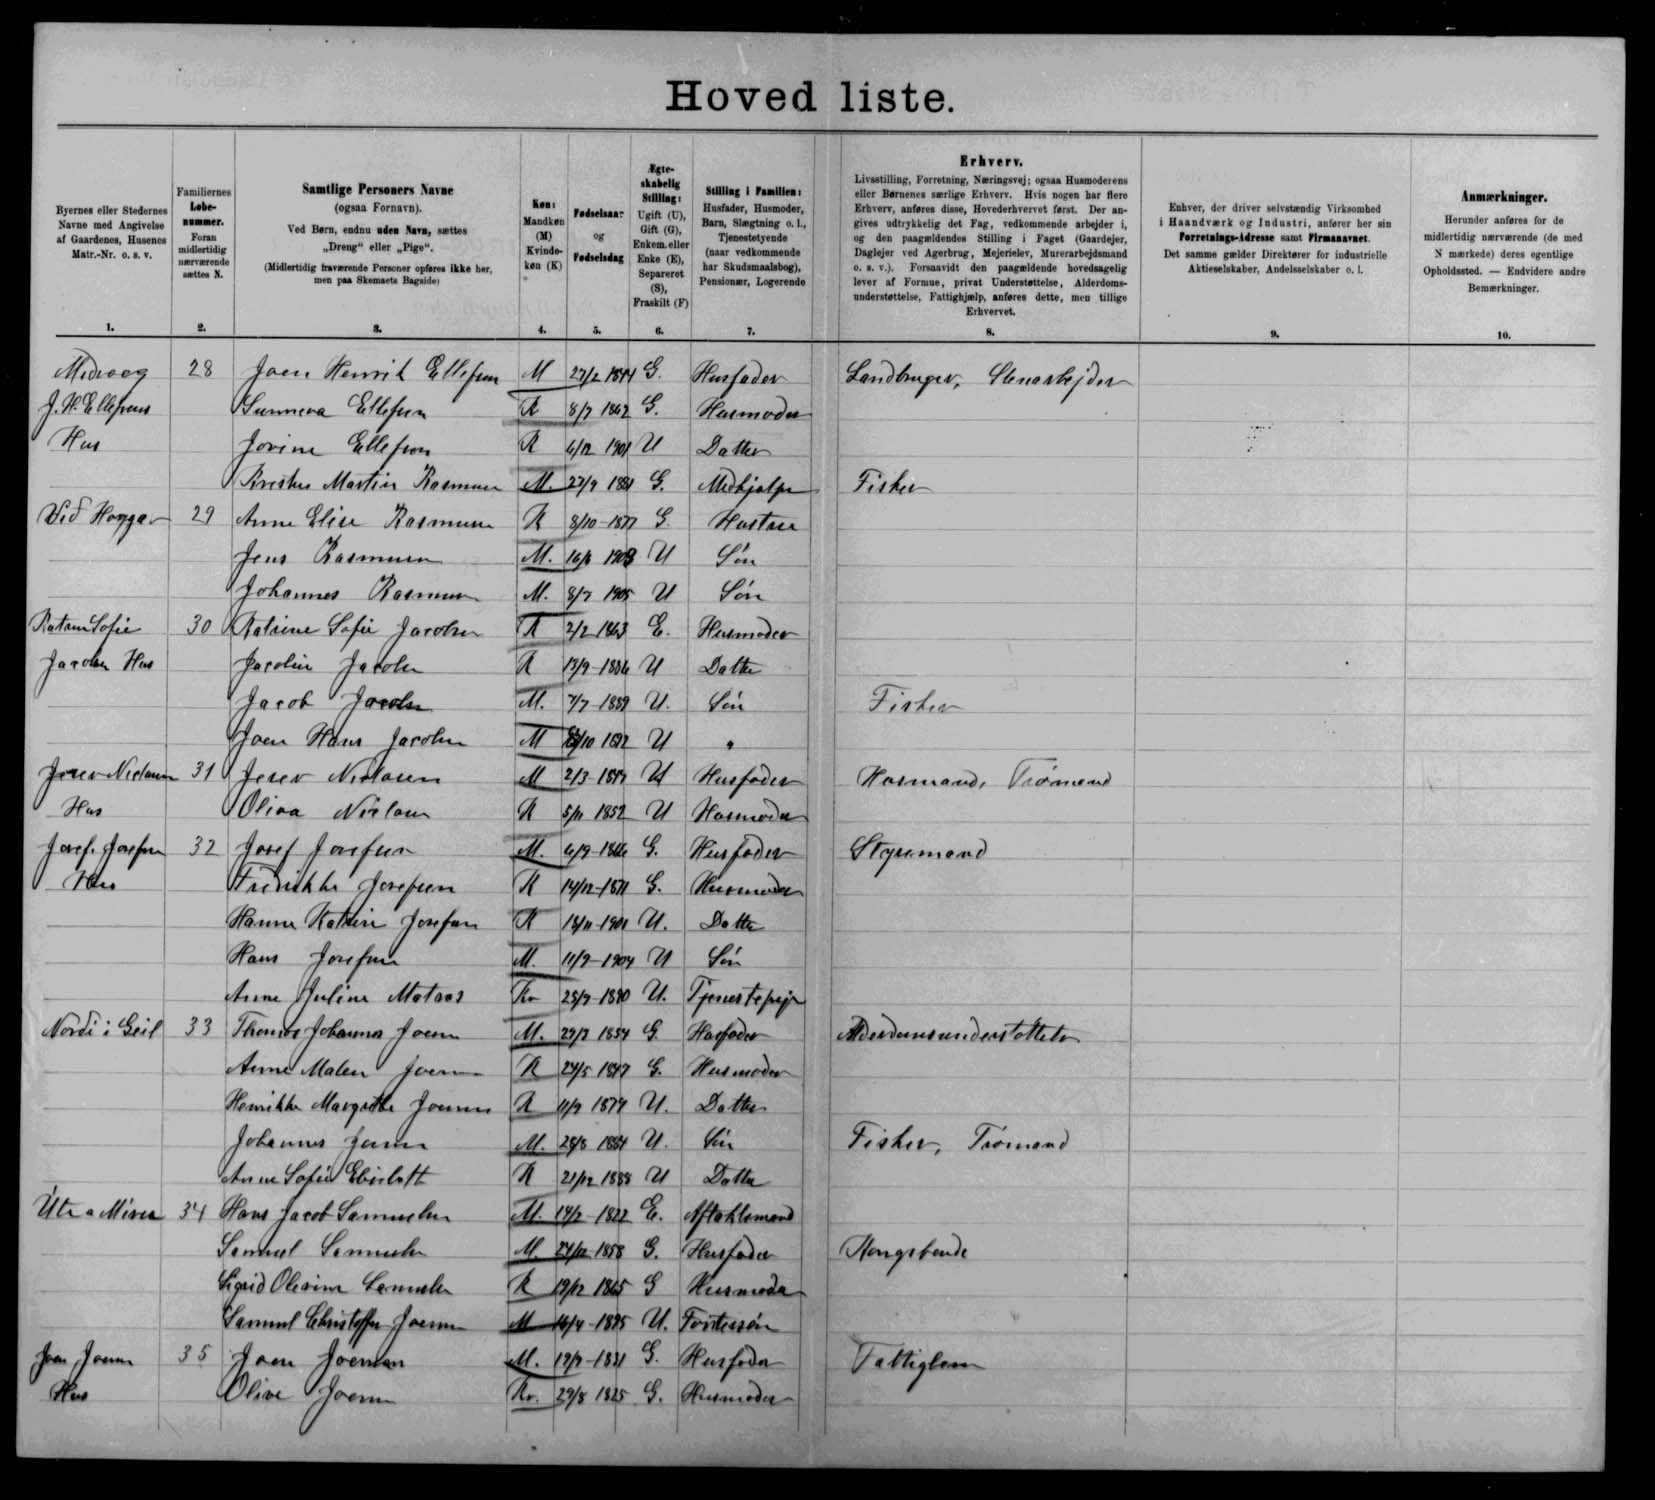 Hoved liste.
Byernes eller Stedernes Navne med Angivelse af Gaardenes, Husenes Matr.-Nr. o. s. v.
1.
Familiernes Løbenummer. Foran midlertidig nærværende sættes N.
2.
Samtlige Personers Navne (ogsaa Fornavn). Ved Børn, endnu uden Navn, sættes „Dreng" eller „Pige". (Midlertidig fraværende Personer opføres ikke her, men paa Skemaets Bagside)
3.
Køn: Mandkøn (M) Kvindekøn (K)
4.
Fødselsaar og Fødselsdag
5.
Ægteskabelig Stilling: Ugift (U), Gift (G), Enkem. eller Enke (E), Separeret (S), Fraskilt (F)
6.
Stilling i Familien: Husfader, Husmoder, Barn, Slægtning o. l., Tjenestetyende (naar vedkommende har Skudsmaalsbog), Pensionær, Logerende
7.
Erhverv.
Livsstilling, Forretning, Næringsvej; ogsaa Husmoderens eller Børnenes særlige Erhverv. Hvis nogen har flere Erhverv, anføres disse, Hovederhvervet først. Der angives udtrykkelig det Fag, vedkommende arbejder i, og den paagældendes Stilling i Faget (Gaardejer, Daglejer ved Agerbrug, Mejerielev, Murerarbejdsmand o. s. v.). Forsaavidt den paagældende hovedsagelig lever af Formue, privat Understøttelse, Alderdomsunderstøttelse, Fattighjælp, anføres dette, men tillige Erhvervet.
8.
Enhver, der driver selvstændig Virksomhed i Haandværk og Industri, anfører her sin Forretnings-Adresse samt Firmanavnet. Det samme gælder Direktører for industrielle Aktieselskaber, Andelsselskaber o. l.
9.
Anmærkninger.
Herunder anføres for de midlertidig nærværende (de med N mærkede) deres egentlige Opholdssted. — Endvidere andre Bemærkninger.
10.
Midvaag 28 Joen Henrik Ellefsen M 27/2 G. Husfader Landbruger, Stenarbejder
J. H. Ellefsens Sunneva Ellefsen K 8/7 1862 G. Husmoder
Hus Jovine Ellefsen K 6/12 1901 U Datter
Martin Rasmusen M. 27/9 1881 G. Medhjælper Fisker
Vid 29 Anne Elise Rasmusen K 8/10 1877 G. Hustru
Jens Rasmusen M. 1903 U Søn
Johannes Rasmusen M. 8/7 1905 U Søn
Sofie 30 Katrine Sofie Jacobsen K 2/2 1863 E. Husmoder
Jacobsen Hus Jacobine Jacobsen K 1886 U Datter
Jacob Jacobsen M. 7/7 1889 U. Søn Fisker
Joen Hans Jacobsen M 1892 U "
31 2/3 U Husfader Husmand, Trømand
Hus Oliva K 5/11 1852 U Husmoder
Josef Josefsen 32 Josef Josefsen M. 6/9 1866 G. Husfader Styrmand
Hus Fredrikke Josefsen K 14/12 1871 G. Husmoder
Hanne Katrine Josefsen K 1901 U. Datter
Hans Josefsen M. 11/9 1904 U Søn
Anne Juline Matras Kv 25/9 1890 U. Tjenestepige
Nordi i Geil 33 Thomas Johannes Joensen M. 1854 G. Husfader Alderdomsunderstøttelse
Anne Malene Joensen K 24/5 1847 G. Husmoder
Henrikke Margrethe Joensen K 11/9 1879 U. Datter
Johannes Joensen M. 1884 U. Søn Fisker, Trømand
Anne Sofie K 21/12 1888 U Datter
34 Hans Jacob Samuelsen M. 14/2 1822 E. Aftægtsmand
Samuel Samuelsen M. 24/12 1858 G. Husfader Kongsbonde
Sigrid Olevine Samuelsen K 19/12 1865 G Husmoder
Samuel Christoffer Joensen M 16/4 1895 U. Fostersøn
Joen Joensen 35 Joen Joensen M. 1831 G. Husfader Fattiglem
Hus Olive Joensen Kv. 29/8 1825 G. Husmoder